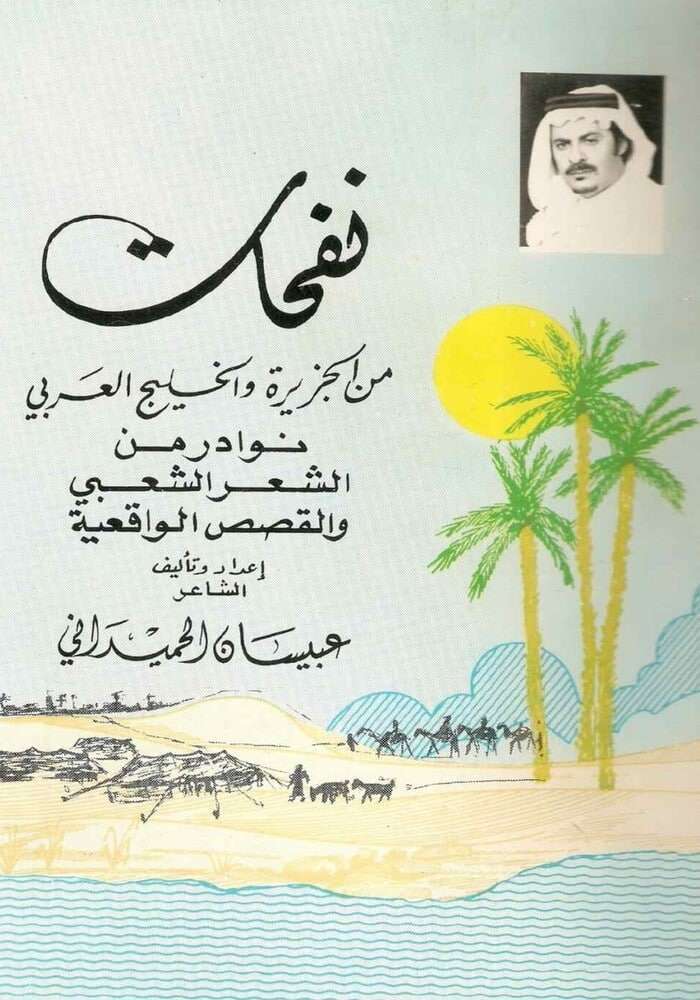 نفحات
من الجزيرة والخليج العربي
نوادر من
الشعر الشعبي
والقصص الواقعية
إعداد وتأليف
الشاعر
عبيسان الحميداني